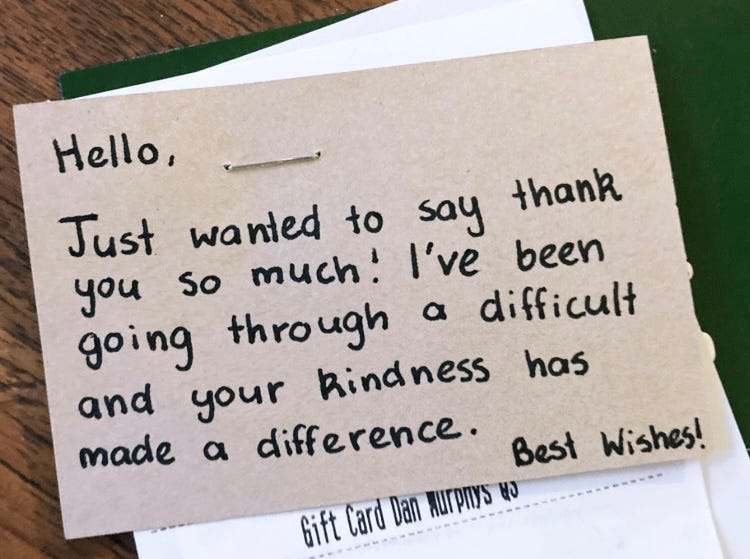 Hello,
Just wanted to say thank
you so much! I've been
going through a difficult
and your kindness has
made a difference.
Best Wishes!
Gift Card Dan Murphys